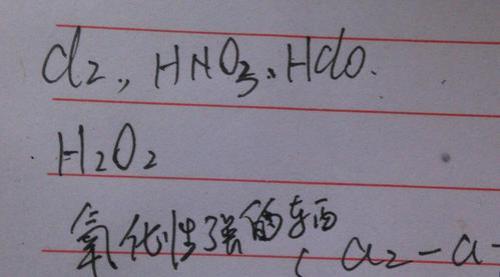 Cl₂, HNO₃、HClO.
H₂O₂
氧化性强的东西
(Cl₂ — Cl-